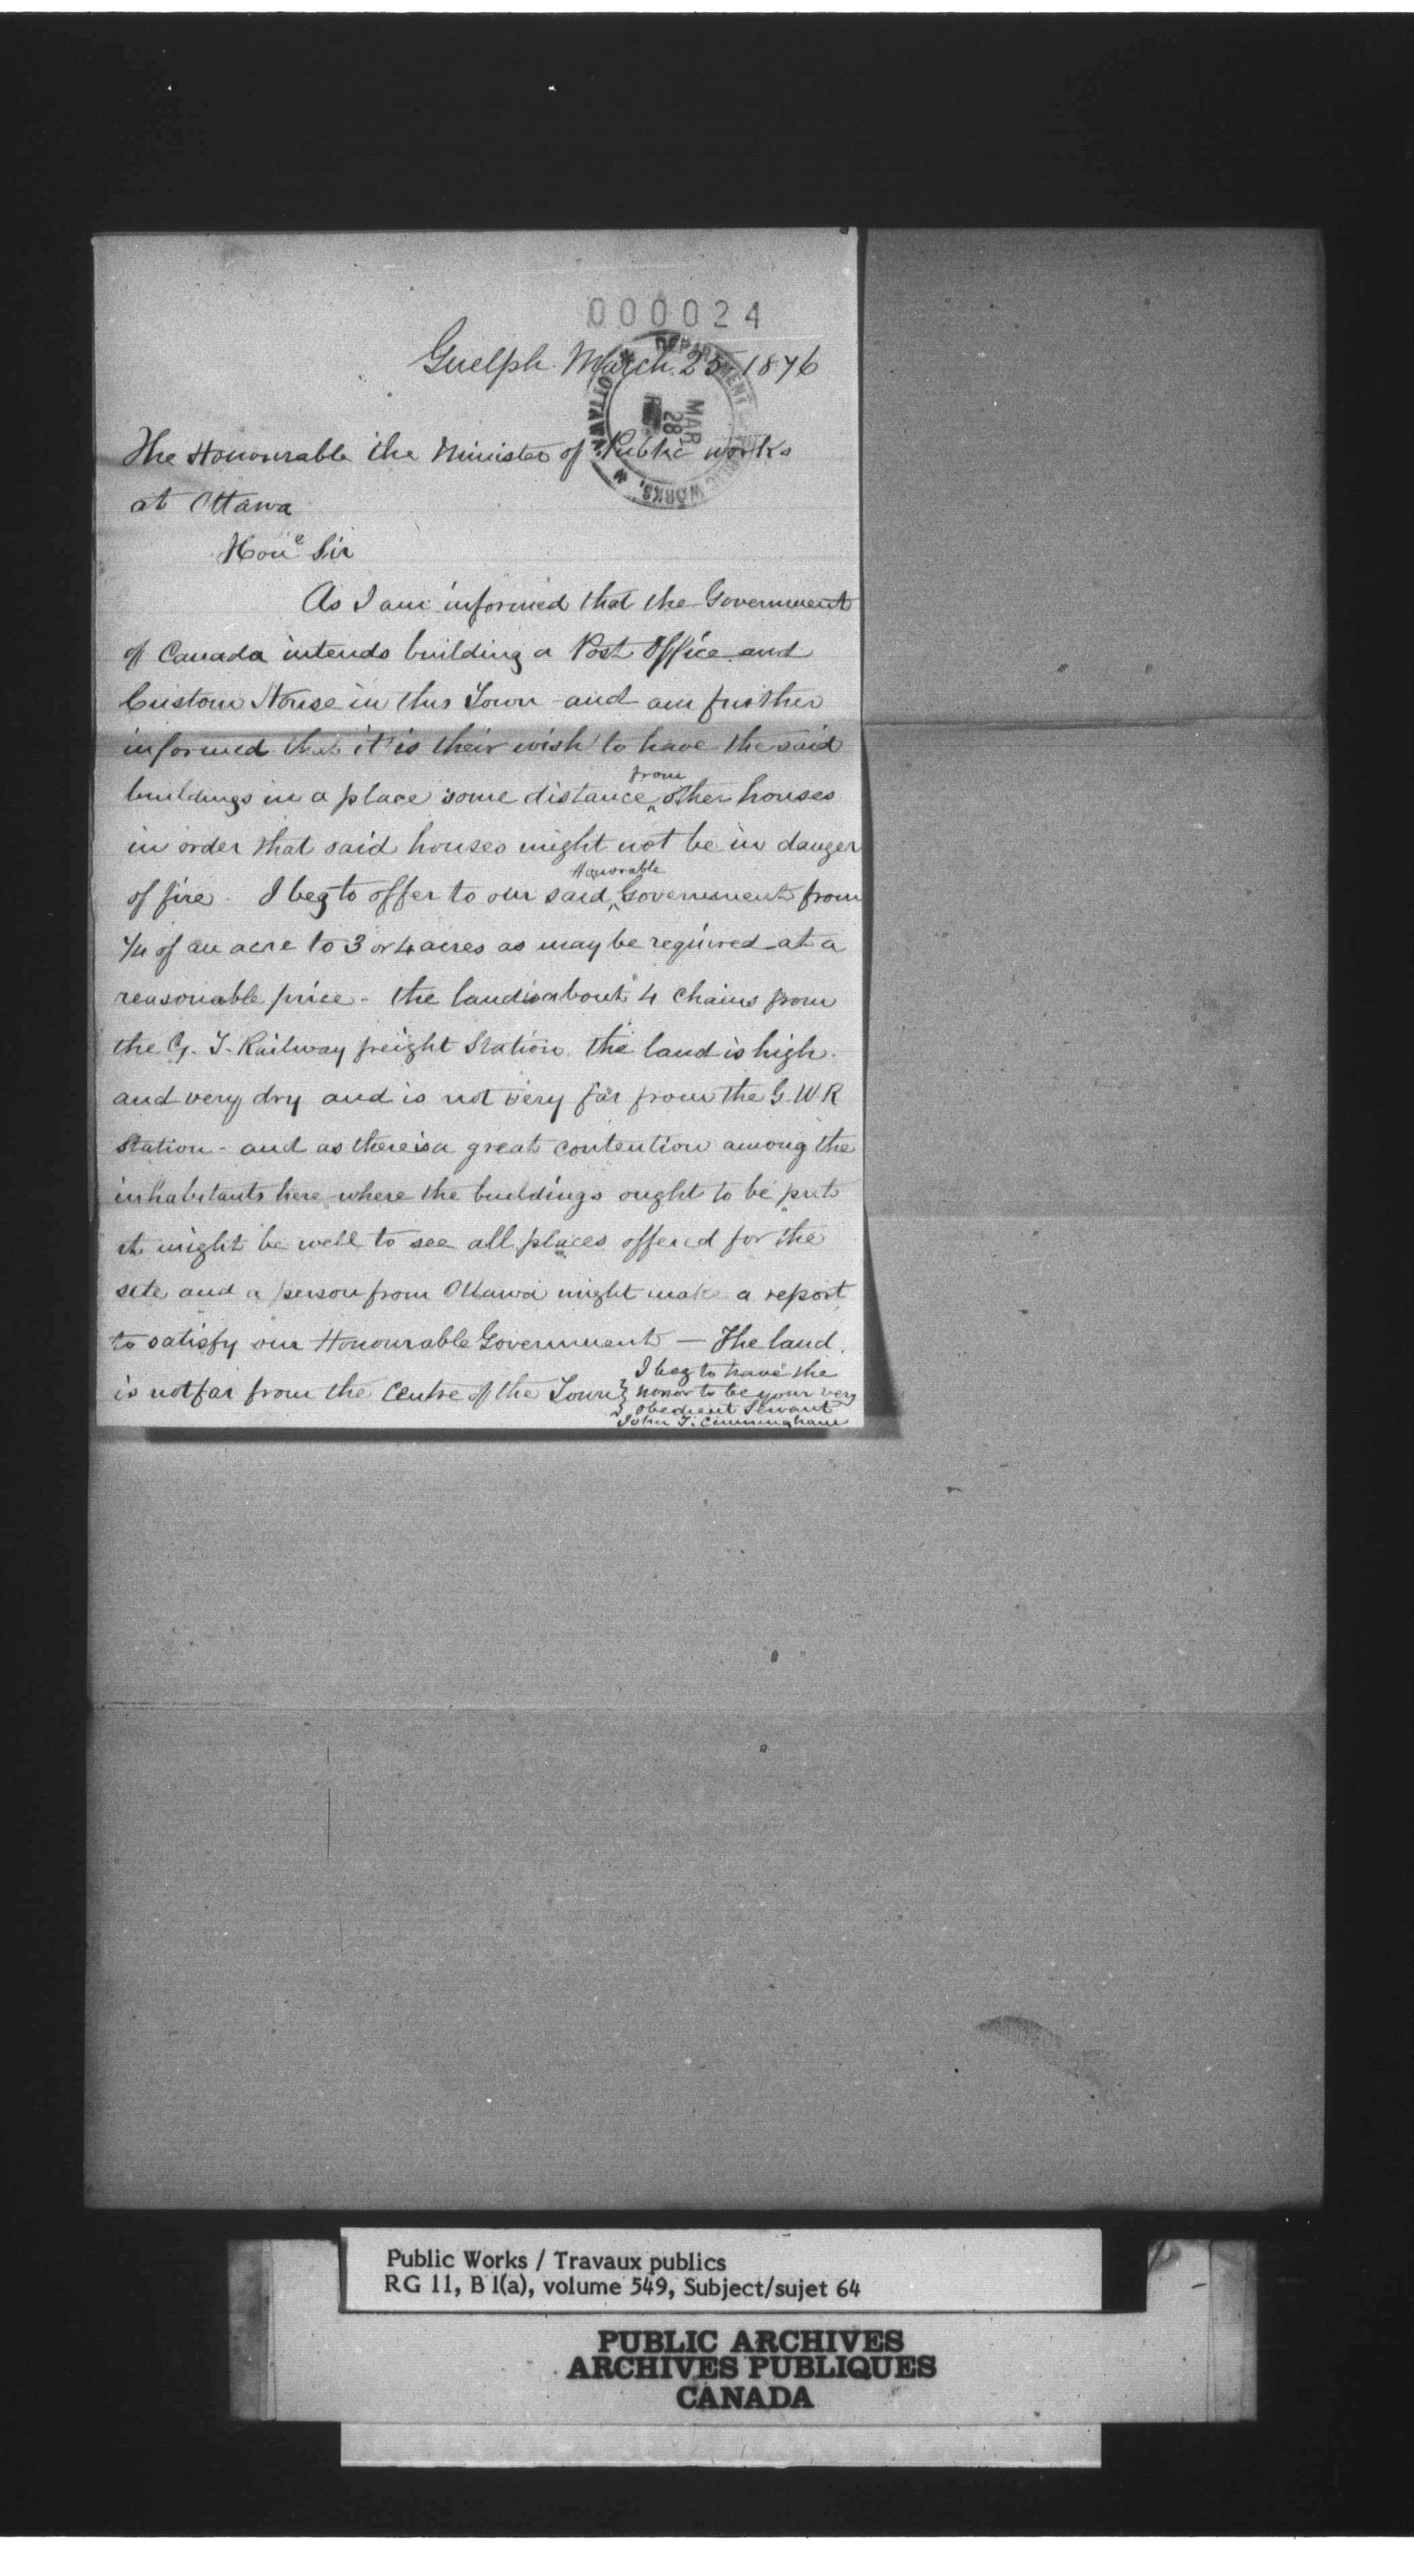 000024
Guelph March 25 1876
DEPARTMENT OF PUBLIC WORKS, OTTAWA
MAR
28
The Honourable the Minister of Public works
at Ottawa
Hon<sup>e</sup> Sir
As I am informed that the Government
of Canada intends building a Post Office and
Custom House in this Town and am further
informed that it is their wish to have the said
buildings in a place some distance from other houses
in order that said houses might not be in danger
of fire - I beg to offer to our said Honorable Government from
1/4 of an acre to 3 or 4 acres as may be required at a
reasonable price - the land is about 4 chains from
the G. T. Railway freight Station, the land is high
and very dry and is not very far from the G. W R
Station - and as there is a great contention among the
inhabitants here where the buildings ought to be put
it might be well to see all places offered for the
site and a person from Ottawa might make a report
to satisfy our Honourable Government — The land
is not far from the Centre of the Town
I beg to have the
honor to be your very
obedient Servant
John T. Cunningham
Public Works / Travaux publics
RG 11, B 1(a), volume 549, Subject/sujet 64
PUBLIC ARCHIVES
ARCHIVES PUBLIQUES
CANADA